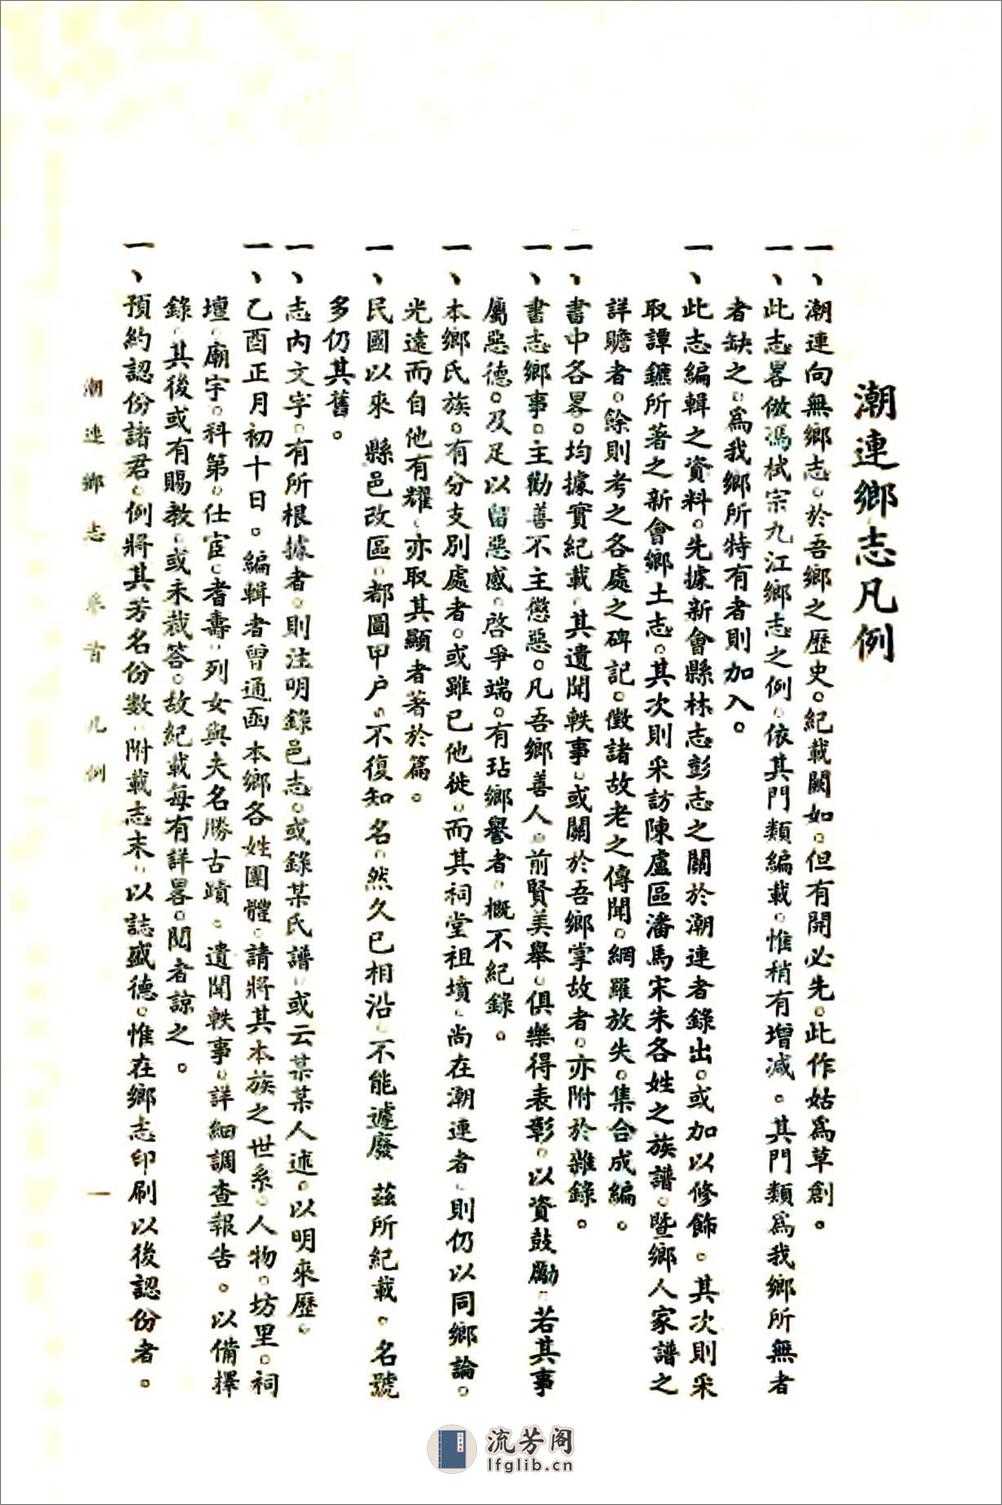 潮連鄉志凡例
一、潮連向無鄉志。於吾鄉之歷史。紀載闕如。但有開必先。此作姑爲草創。
一、此志畧倣馮栻宗九江鄉志之例。依其門類編載。惟稍有增減。其門類爲我鄉所無者
者缺之。爲我鄉所特有者則加入。
一、此志編輯之資料。先據新會縣林志彭志之關於潮連者錄出。或加以修飾。其次則采
取譚鑣所著之新會鄉土志。其次則采訪陳盧區潘馬宋朱各姓之族譜。暨鄉人家譜之
詳贍者。餘則考之各處之碑記。徵諸故老之傳聞。網羅放失。集合成編。
一、書中各畧。均據實紀載。其遺聞軼事。或關於吾鄉掌故者。亦附於雜錄。
一、書志鄉事。主勸善不主懲惡。凡吾鄉善人。前賢美舉。俱樂得表彰。以資鼓勵。若其事
屬惡德。及足以留惡感。啓爭端。有玷鄉譽者。概不紀錄。
一、本鄉氏族。有分支別處者。或雖已他徙。而其祠堂祖墳。尚在潮連者。則仍以同鄉論。
光遠而自他有耀。亦取其顯者著於篇。
一、民國以來。縣邑改區。都圖甲户。不復知名。然久已相沿。不能遽廢。茲所紀載。名號
多仍其舊。
一、志內文字。有所根據者。則注明錄邑志。或錄某氏譜。或云某某人述。以明來歷。
一、乙酉正月初十日。編輯者曾通函本鄉各姓團體。請將其本族之世系。人物。坊里。祠
壇。廟宇。科第。仕宦。耆壽。列女與夫名勝古蹟。遺聞軼事。詳細調查報告。以備擇
錄。其後或有賜教。或未裁答。故紀載每有詳畧。閱者諒之。
一、預約認份諸君。例將其芳名份數。附載志末。以誌盛德。惟在鄉志印刷以後認份者。
潮連鄉志 卷首 凡例 一
流芳阁
lfglib.cn